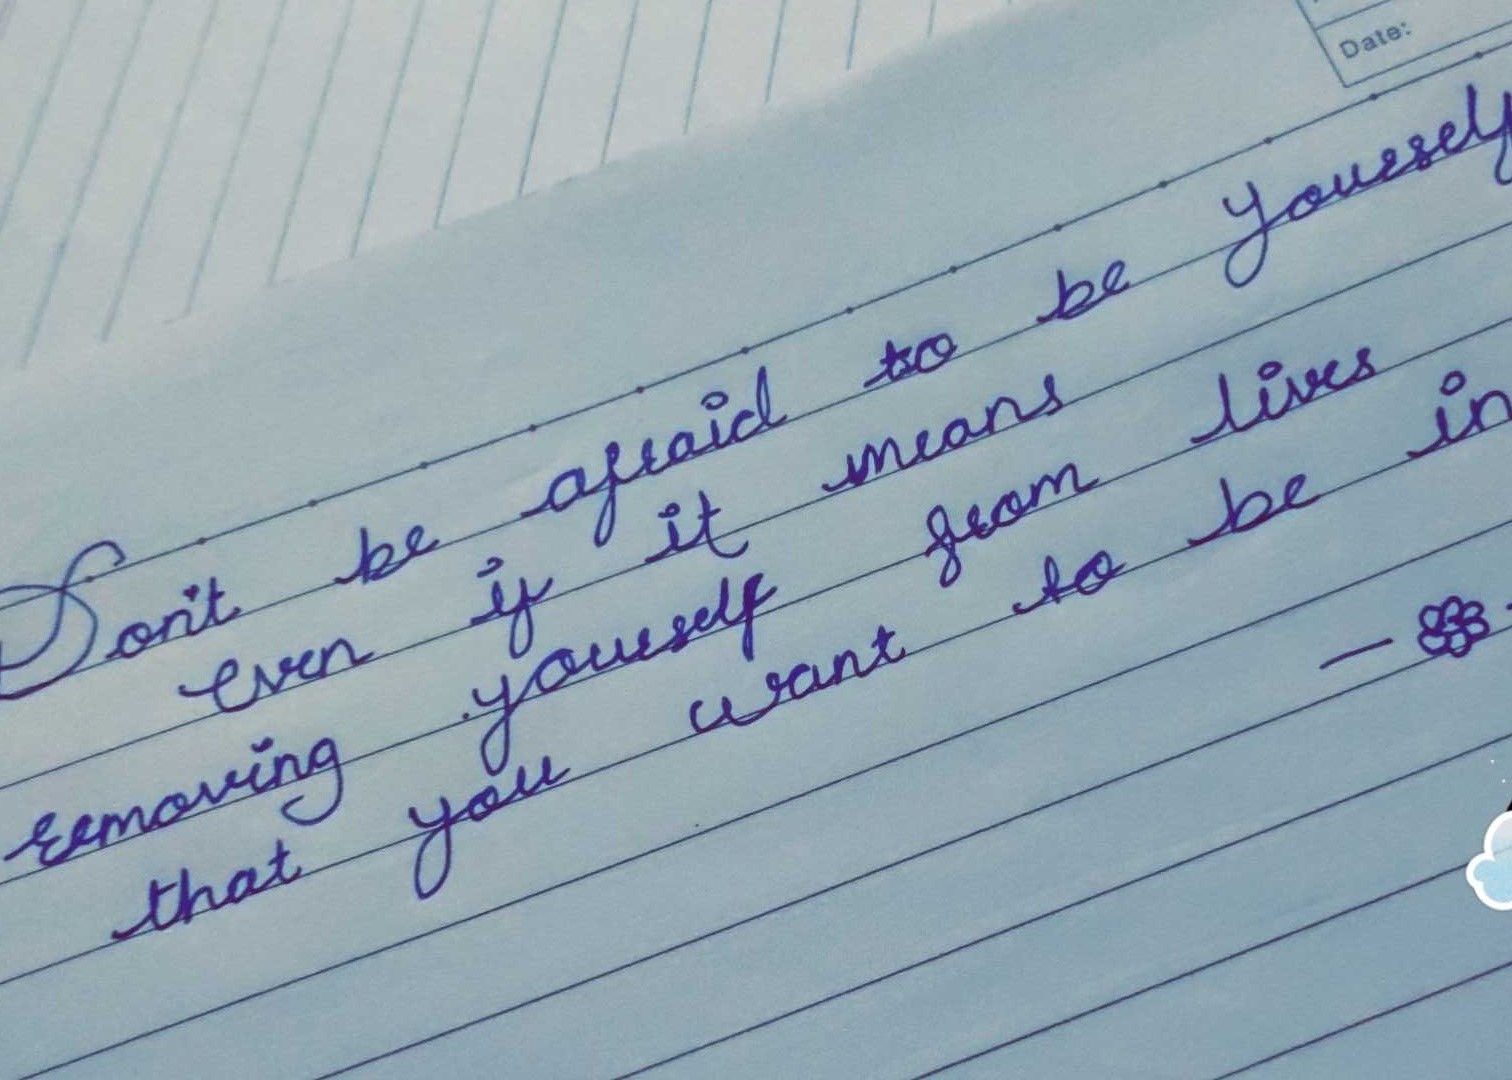 Date:
Don't be afraid to be yourself
even if it means
removing yourself from lives
that you want to be in